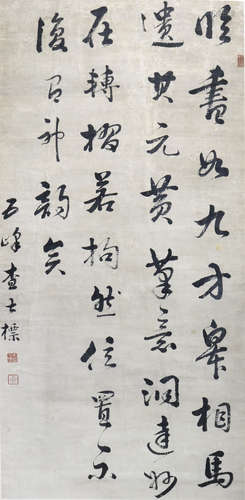 臨書如九方皋相馬
遺其元黃筆意洞達妙
在轉摺若拘然位置不
復有神韻矣
查士標